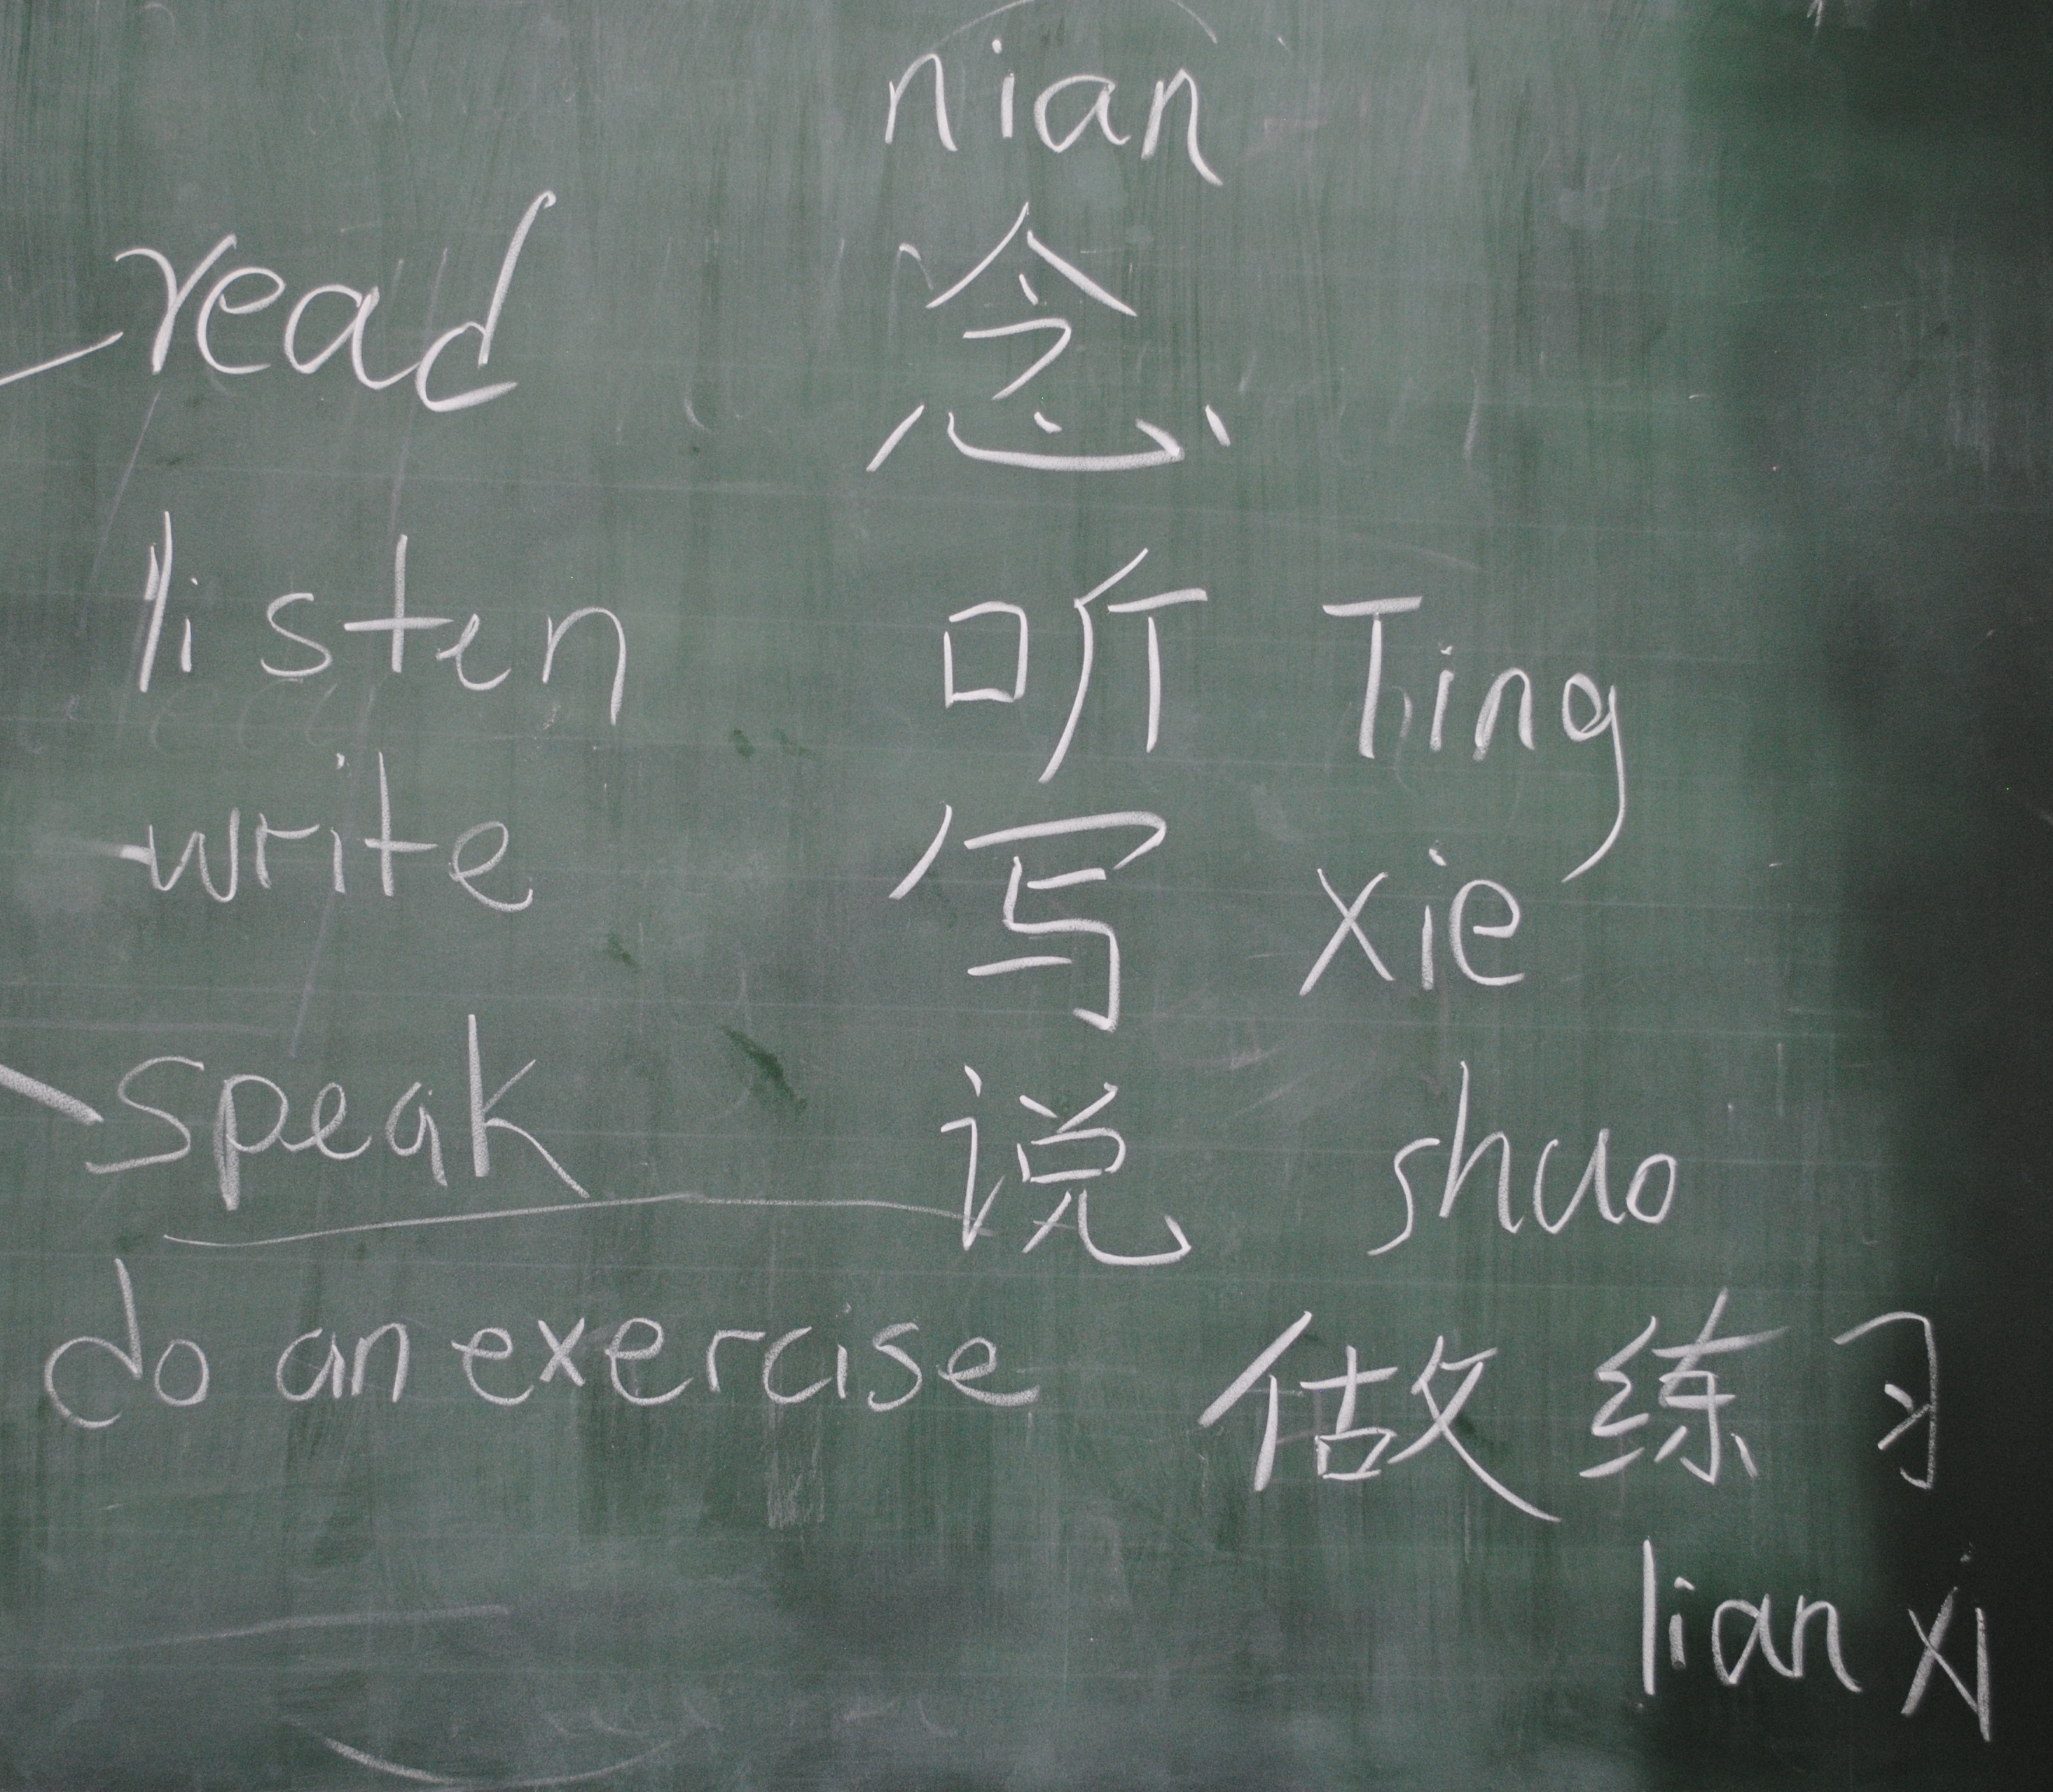 nian
read 念
listen 听 Ting
write 写 xie
speak 说 shuo
do an exercise 做 练 习
lian xi